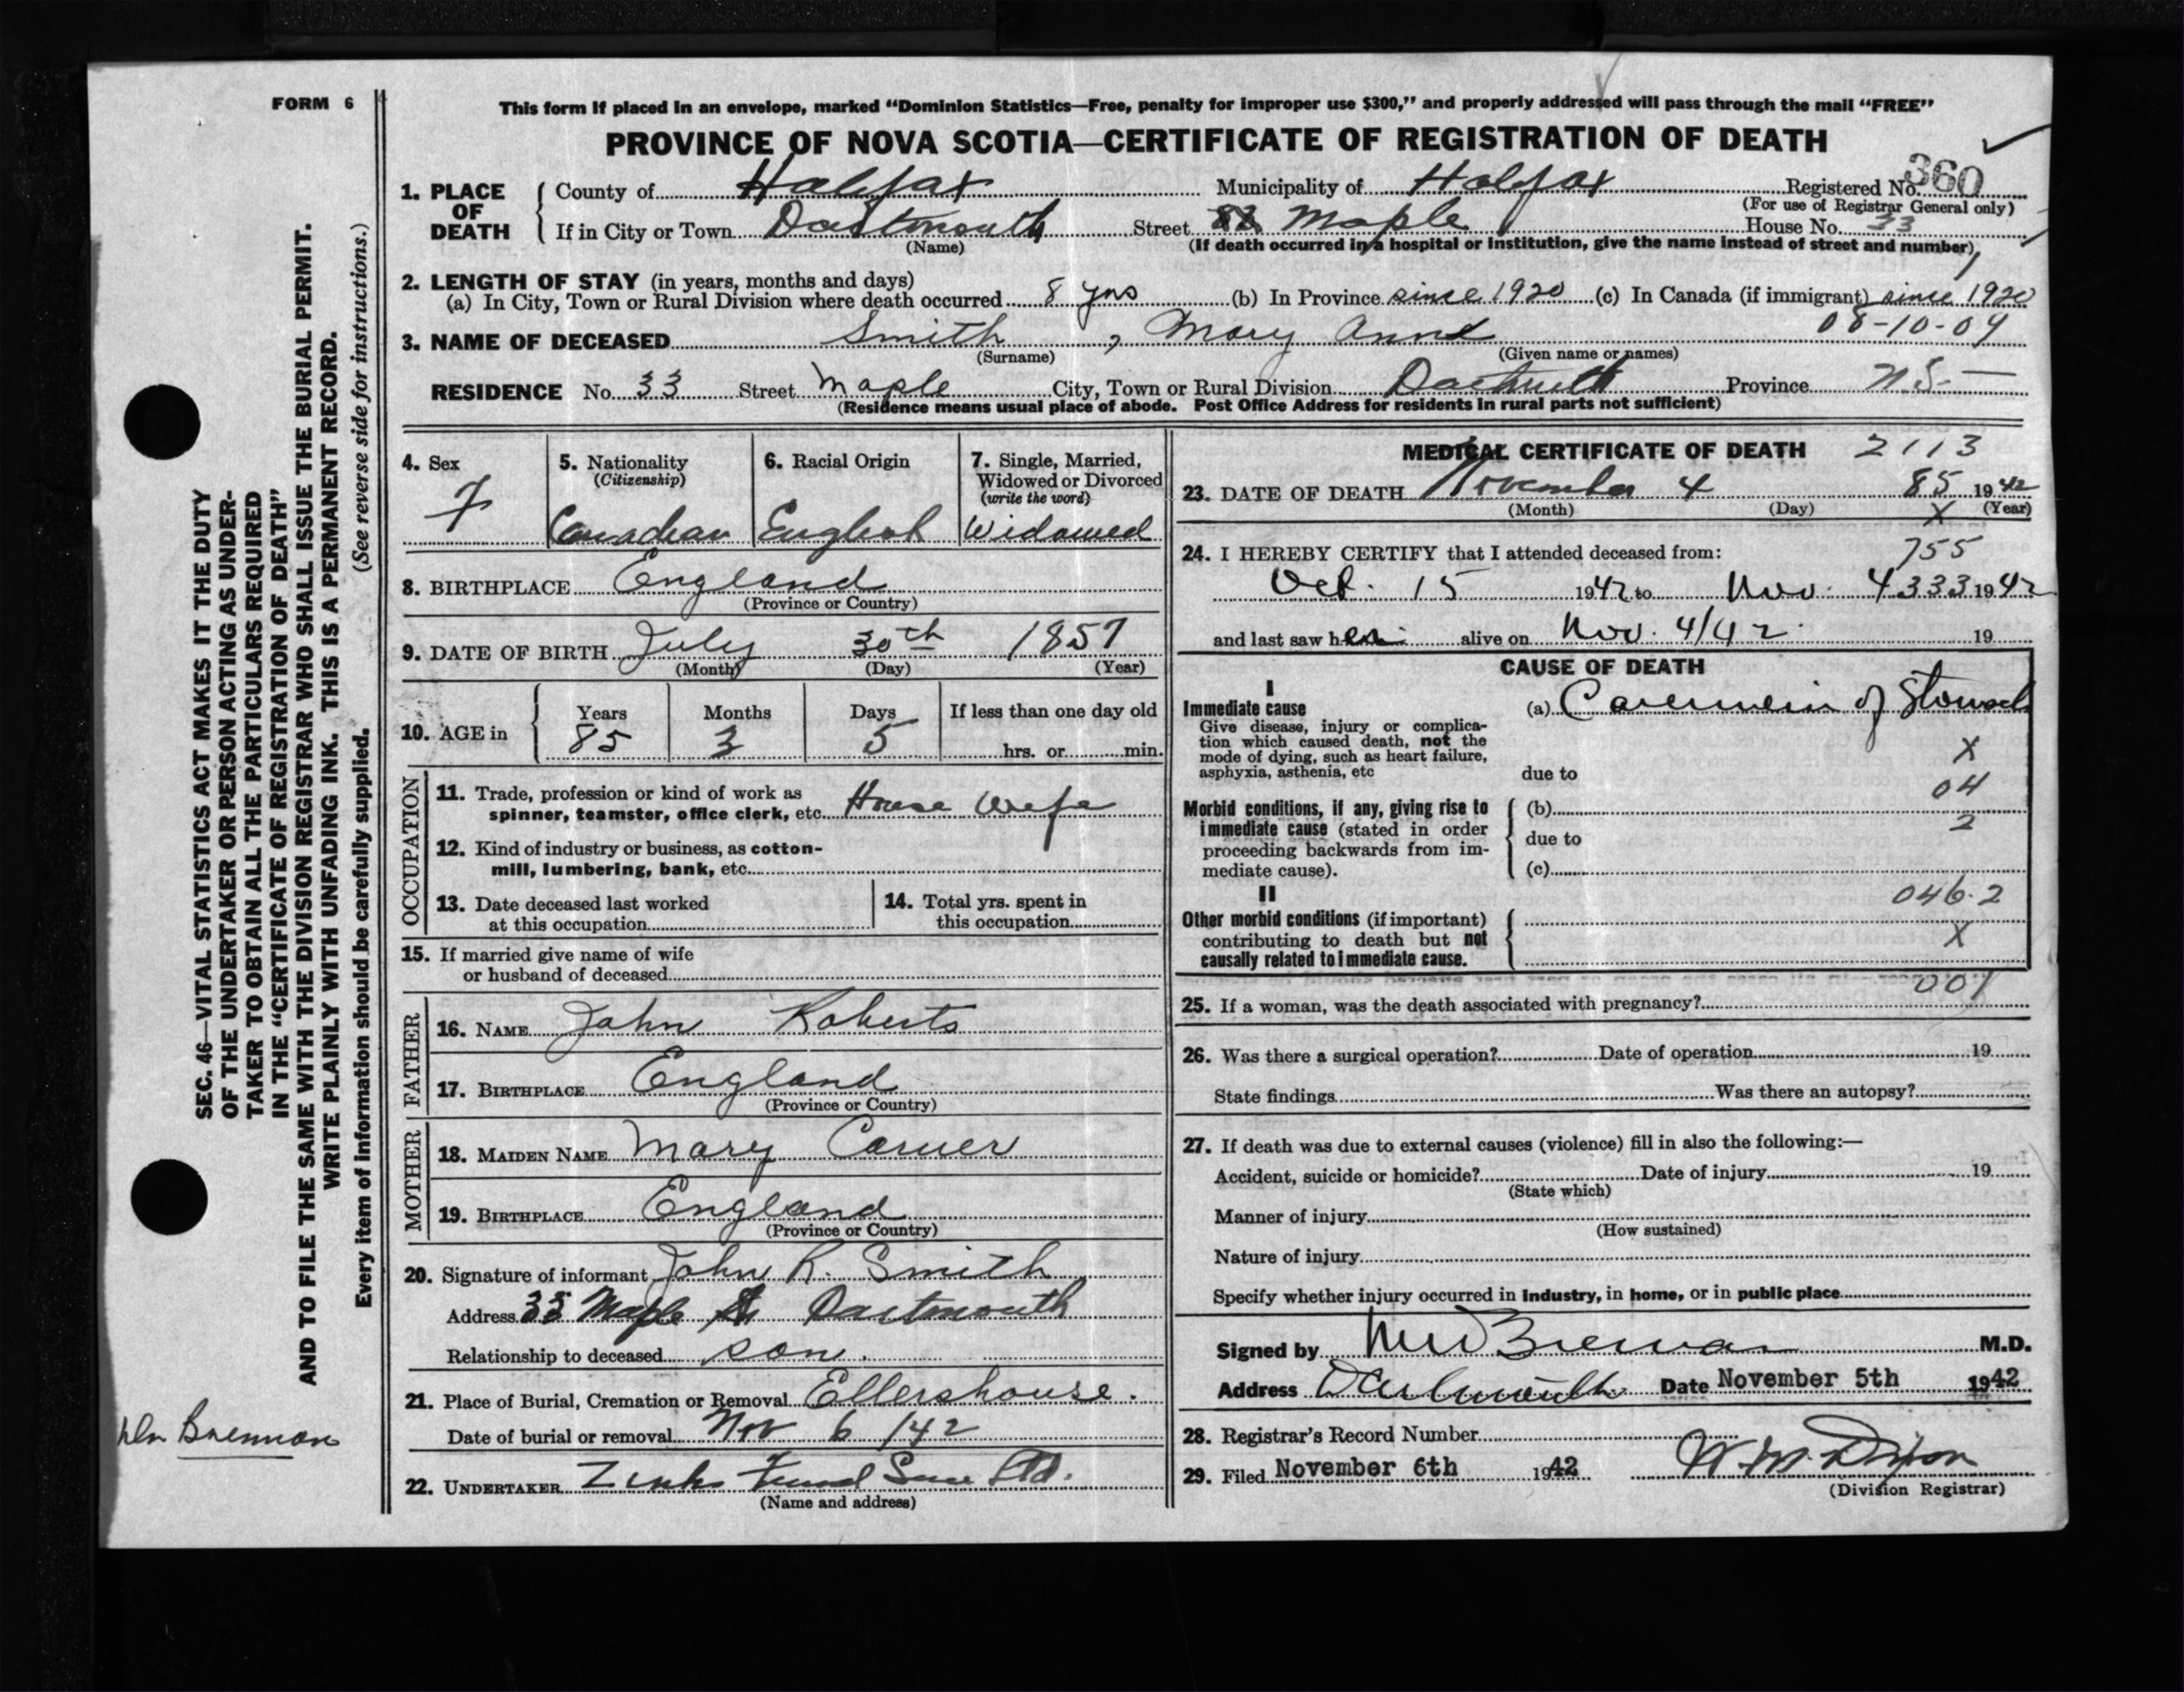 FORM 6
This form if placed in an envelope, marked “Dominion Statistics—Free, penalty for improper use $300,” and properly addressed will pass through the mail “FREE”
PROVINCE OF NOVA SCOTIA—CERTIFICATE OF REGISTRATION OF DEATH
1. PLACE OF DEATH { County of Halifax Municipality of Halifax Registered No. 360
(For use of Registrar General only)
If in City or Town Dartmouth Street Maple House No. 33
(Name) (If death occurred in a hospital or institution, give the name instead of street and number)
2. LENGTH OF STAY (in years, months and days)
(a) In City, Town or Rural Division where death occurred 8 yrs (b) In Province since 1920 (c) In Canada (if immigrant) since 1920
08-10-09
3. NAME OF DECEASED Smith, Mary Anne
(Surname) (Given name or names)
RESIDENCE No. 33 Street Maple City, Town or Rural Division Dartmouth Province N.S.
(Residence means usual place of abode. Post Office Address for residents in rural parts not sufficient)
4. Sex
F
5. Nationality
(Citizenship)
Canadian
6. Racial Origin
English
7. Single, Married,
Widowed or Divorced
(write the word)
Widowed
8. BIRTHPLACE England
(Province or Country)
9. DATE OF BIRTH July 30th 1857
(Month) (Day) (Year)
10. AGE in { Years Months Days If less than one day old
85 3 5 hrs. or min.
OCCUPATION
11. Trade, profession or kind of work as
spinner, teamster, office clerk, etc. House Wife
12. Kind of industry or business, as cotton-
mill, lumbering, bank, etc.
13. Date deceased last worked
at this occupation
14. Total yrs. spent in
this occupation
15. If married give name of wife
or husband of deceased
FATHER
16. NAME John Roberts
17. BIRTHPLACE England
(Province or Country)
MOTHER
18. MAIDEN NAME Mary
19. BIRTHPLACE England
(Province or Country)
20. Signature of informant John R. Smith
Address 33 Maple St Dartmouth
Relationship to deceased son.
21. Place of Burial, Cremation or Removal Ellershouse.
Date of burial or removal Nov 6 /42
22. UNDERTAKER Ltd.
(Name and address)
MEDICAL CERTIFICATE OF DEATH 2113
23. DATE OF DEATH November 4 85 1942
(Month) (Day) X (Year)
24. I HEREBY CERTIFY that I attended deceased from: 755
Oct. 15 1942 to Nov. 4 333 1942
and last saw her alive on Nov. 4/42. 19
CAUSE OF DEATH
I
Immediate cause (a) of Stomach
Give disease, injury or complica-
tion which caused death, not the
mode of dying, such as heart failure, X
asphyxia, asthenia, etc due to
04
Morbid conditions, if any, giving rise to (b)
immediate cause (stated in order 2
proceeding backwards from im- due to
mediate cause). (c)
II 046.2
Other morbid conditions (if important)
contributing to death but not X
causally related to immediate cause.
001
25. If a woman, was the death associated with pregnancy?
26. Was there a surgical operation? Date of operation 19
State findings Was there an autopsy?
27. If death was due to external causes (violence) fill in also the following:—
Accident, suicide or homicide? Date of injury 19
(State which)
Manner of injury
(How sustained)
Nature of injury
Specify whether injury occurred in industry, in home, or in public place
Signed by M.D.
Address Dartmouth Date November 5th 1942
28. Registrar's Record Number
29. Filed November 6th 1942
(Division Registrar)
SEC. 46—VITAL STATISTICS ACT MAKES IT THE DUTY
OF THE UNDERTAKER OR PERSON ACTING AS UNDER-
TAKER TO OBTAIN ALL THE PARTICULARS REQUIRED
IN THE “CERTIFICATE OF REGISTRATION OF DEATH”
AND TO FILE THE SAME WITH THE DIVISION REGISTRAR WHO SHALL ISSUE THE BURIAL PERMIT.
WRITE PLAINLY WITH UNFADING INK. THIS IS A PERMANENT RECORD.
Every item of information should be carefully supplied. (See reverse side for instructions.)
Brennan